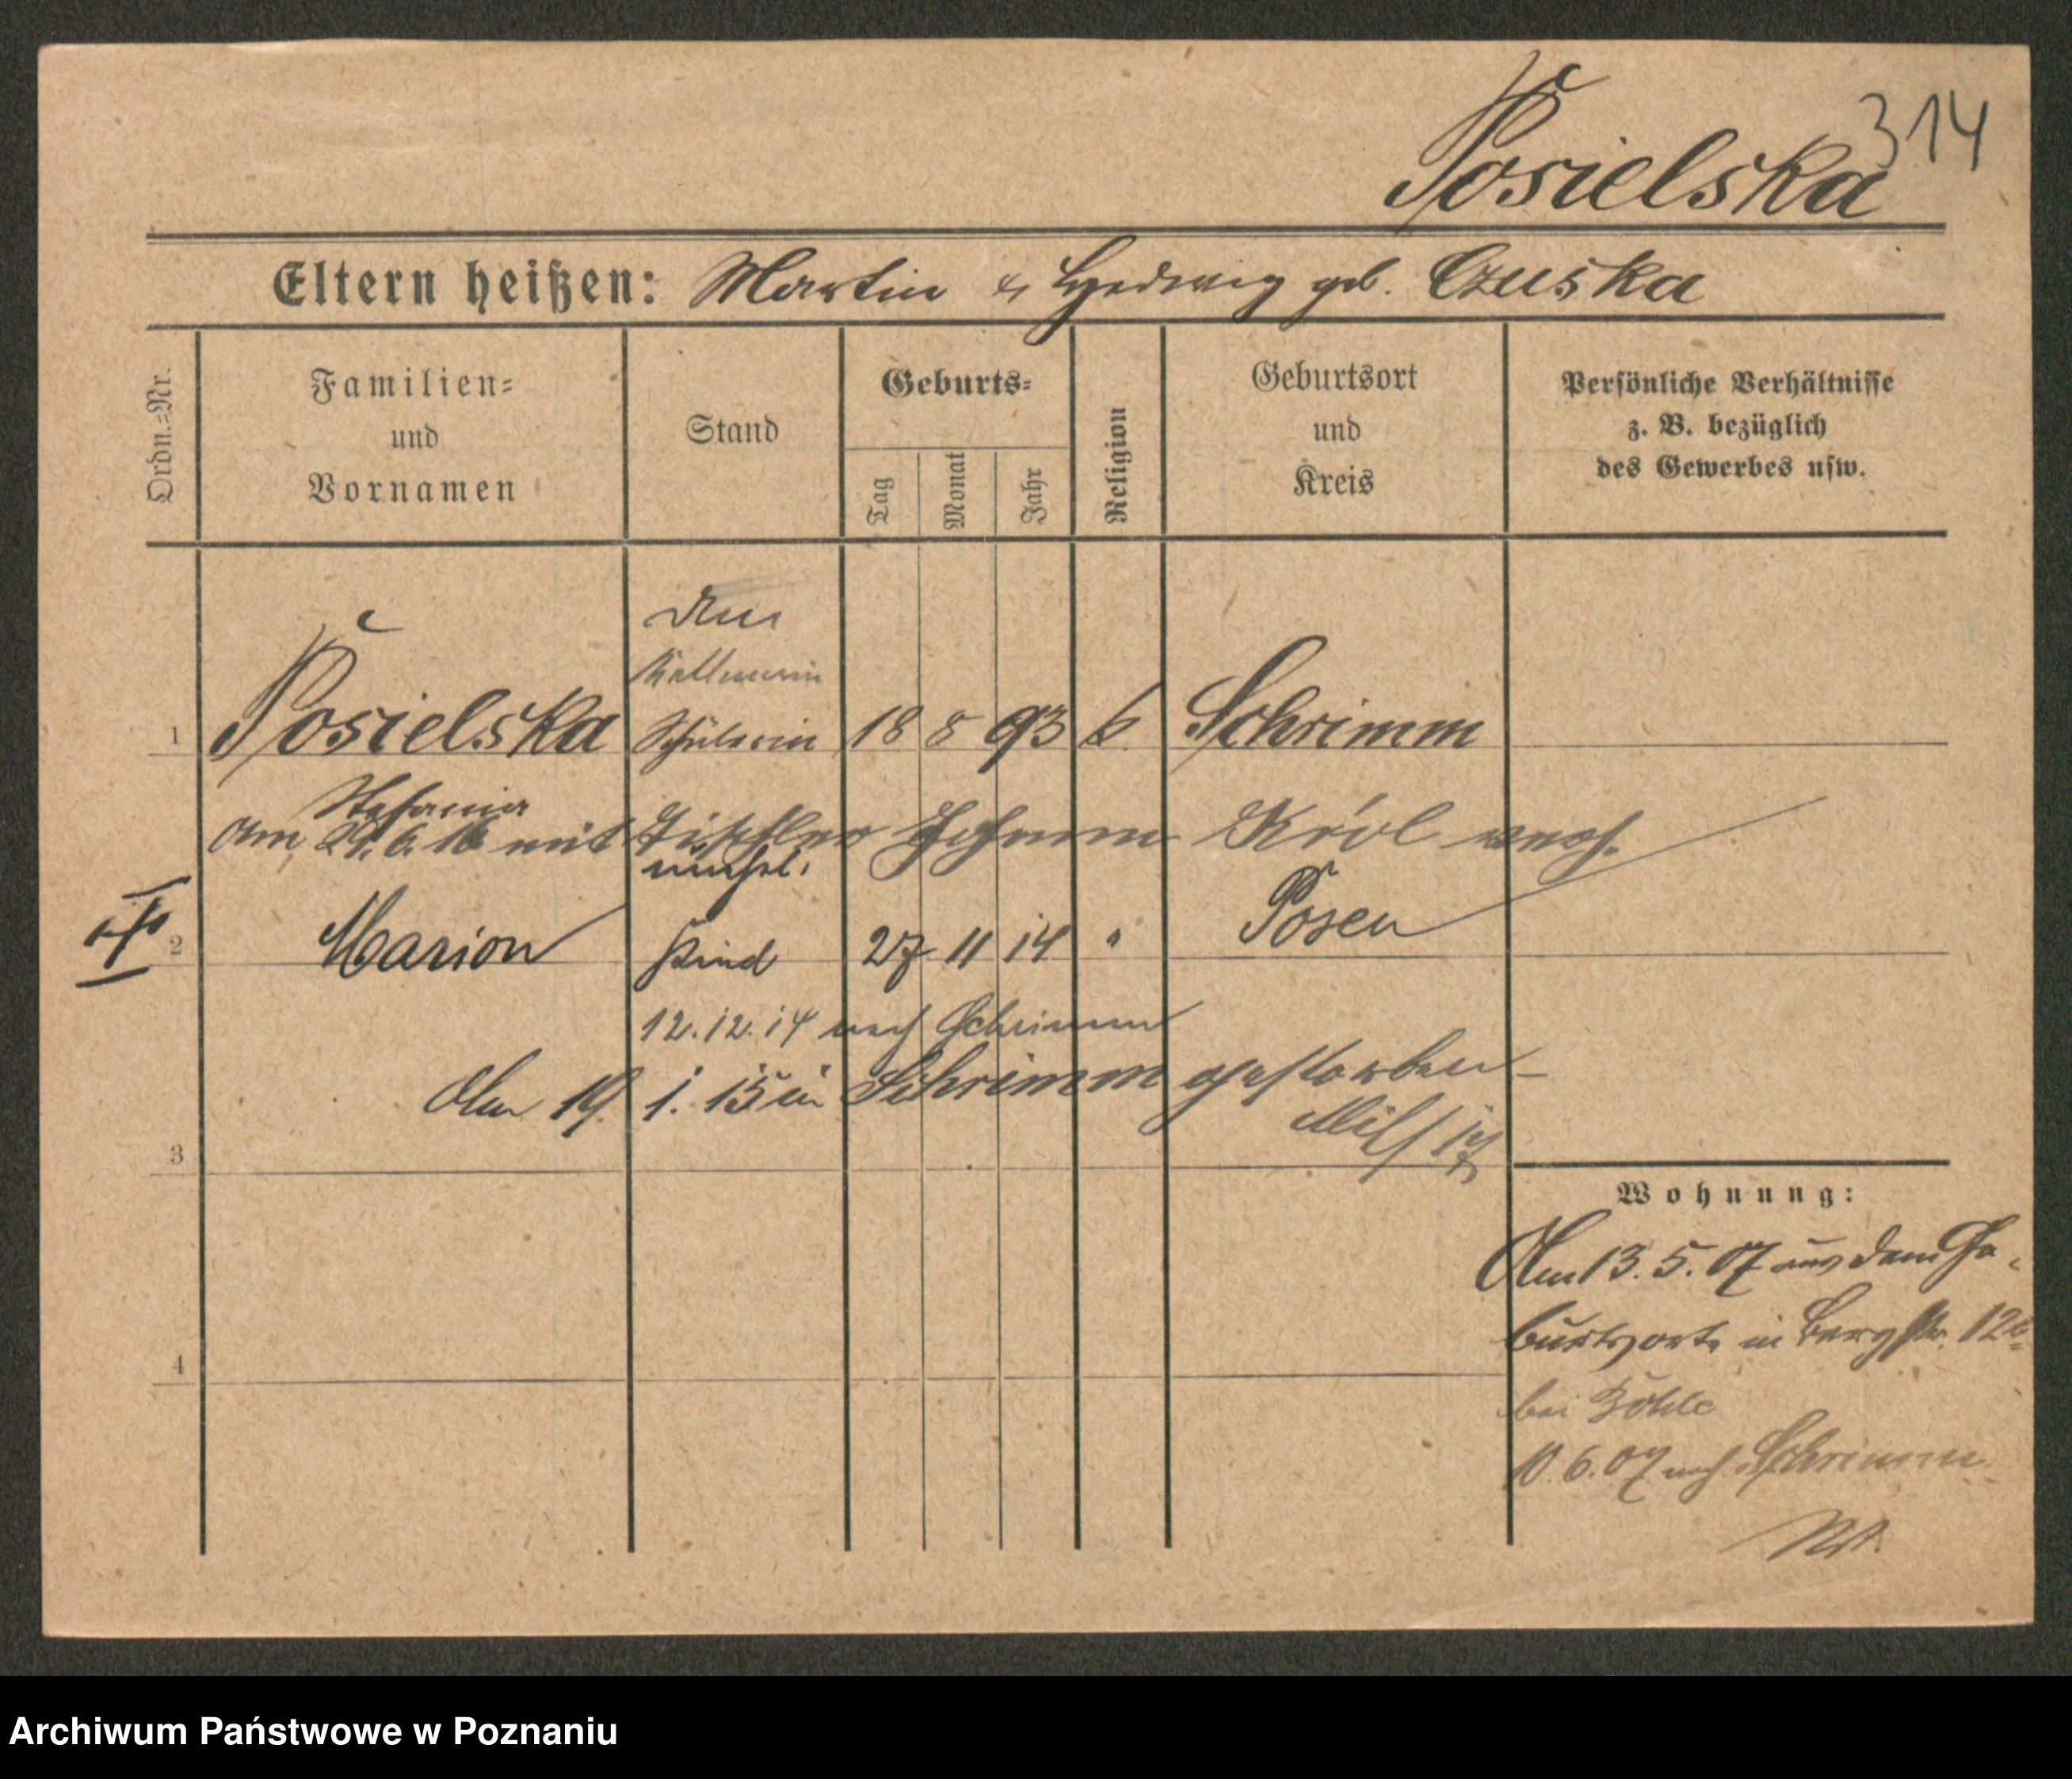 314
Posielska
Eltern heißen: Martin & Hedwig geb. Czuska
Ordn.=Nr.
Familien=
und
Vornamen
Stand
Geburts=
Tag
Monat
Jahr
Religion
Geburtsort
und
Kreis
Persönliche Verhältnisse
z. B. bezüglich
des Gewerbes usw.
Kellnerin
1 Posielska Schülerin 18 8 93 k. Schrimm
Stefania
Am 6. 16 mit Tischler Johann Król verh.
unehel.
2 Marion Kind 27 11 14 " Posen
12.12.14 nach Schrimm
Am 19. 1. 15 in Schrimm gestorben
3
Wohnung:
Am 13. 5. 07 aus dem Ge-
burtsorte in Bergstr. 12
4
bei
10. 6. 07 nach Schrimm
Archiwum Państwowe w Poznaniu